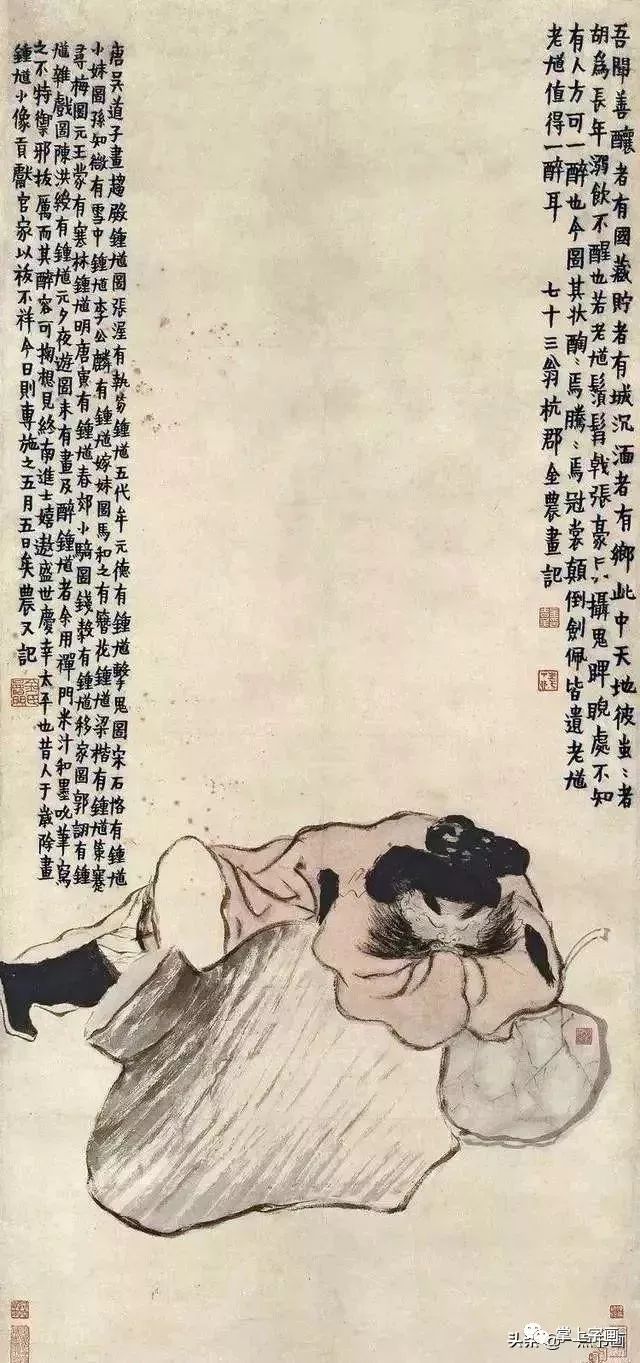 吾聞善釀者有國藏貯者有城沉湎者有鄉此中天地彼蚩〻者
胡為長年溺飲不醒也若老馗鬚髯戟張豪攝鬼睥睨處不知
有人方可一醉也今圖其狀醄〻焉騰〻焉冠裳顛倒劍佩皆遺老馗
老馗值得一醉耳 七十三翁杭郡金農畫記
唐吳道子畫趨殿鍾馗圖張渥有執笏鍾馗五代牟元德有鍾馗擊鬼圖宋石恪有鍾馗
小妹圖孫知微有雪中鍾馗李公麟有鍾馗嫁妹圖馬和之有簪花鍾馗梁楷有鍾馗策蹇
尋梅圖元王蒙有寒林鍾馗明唐寅有鍾馗春郊小騎圖錢穀有鍾馗移家圖郭詡有鍾
馗雜戲圖陳洪綬有鍾馗元夕夜遊圖未有畫及醉鍾馗者余用禪門米汁和墨吮筆寫
之不特禦邪拔厲而其醉容可掬想見終南進士嬉遨盛世慶幸太平也昔人于歲除畫
鍾馗小像貢獻官家以祓不祥今日則專施之五月五日矣農又記
掌上字画
头条@一点书画